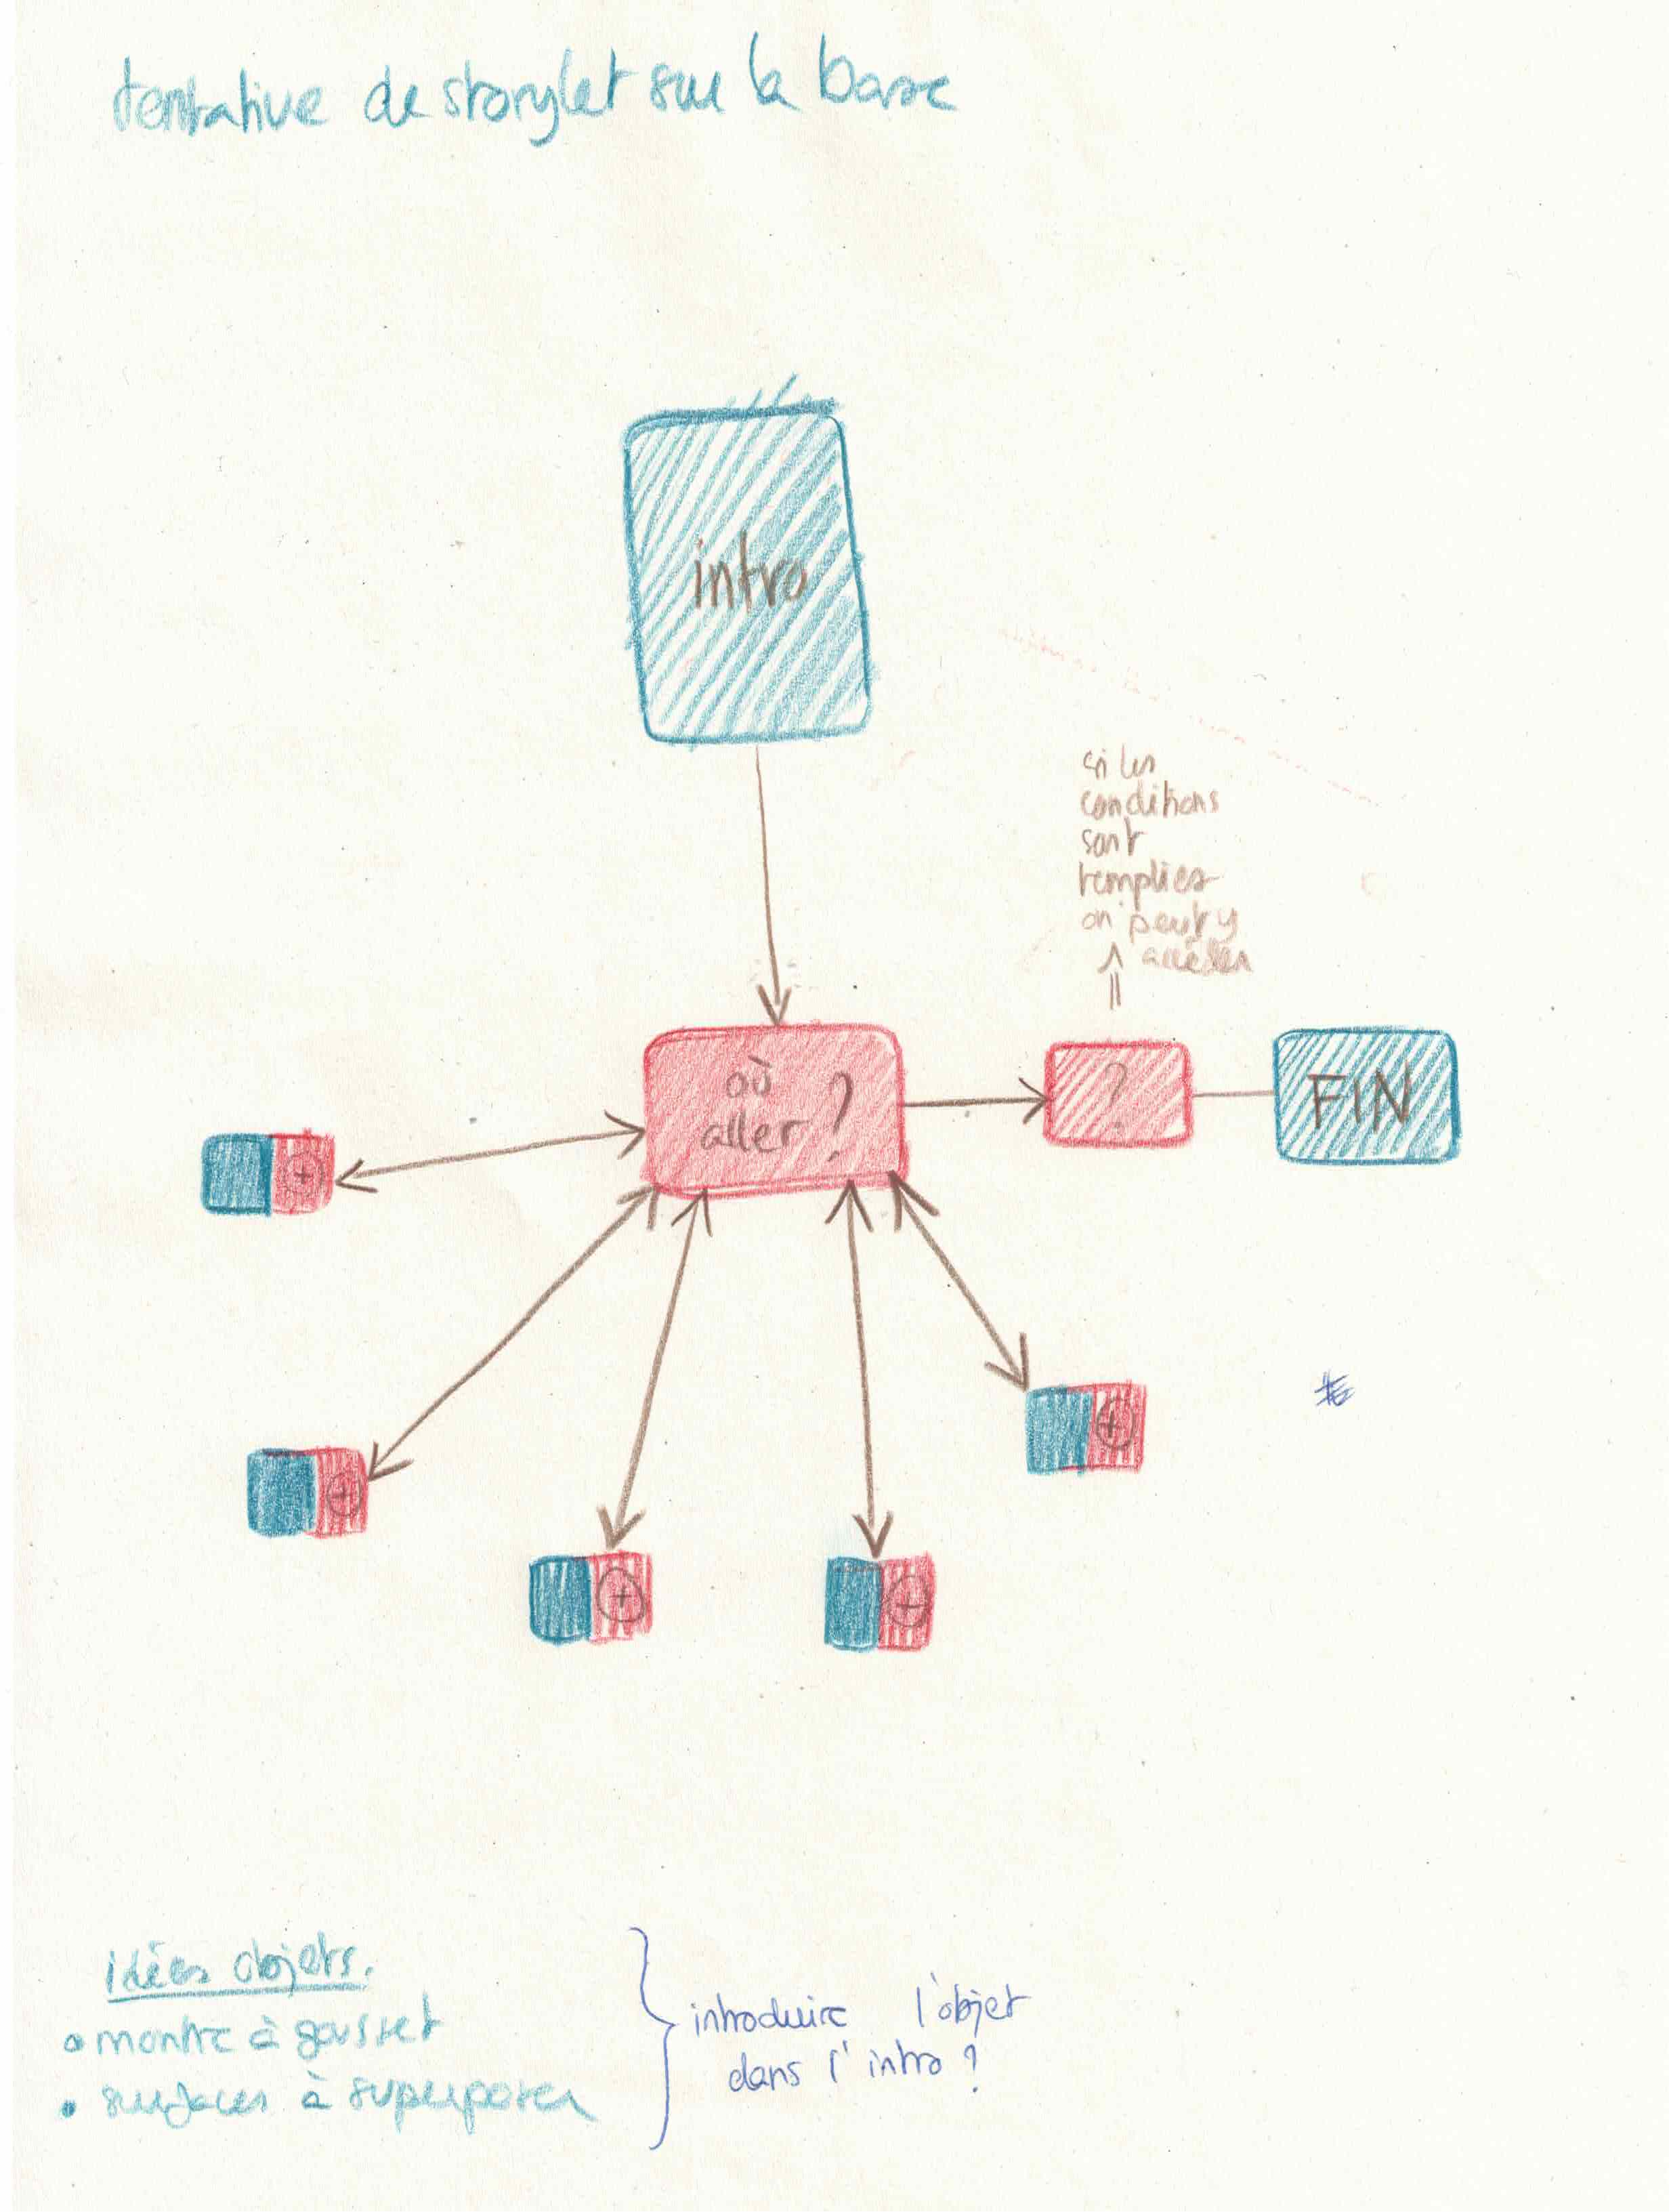 tentative de storylet sur la base
intro
si les
conditions
sont
remplies
on peut y
accéder
où
aller ?
?
FIN
+
+
+
+
+
idées objets.
• montre à gousset
• surfaces à superposer
introduire l'objet
dans l'intro ?